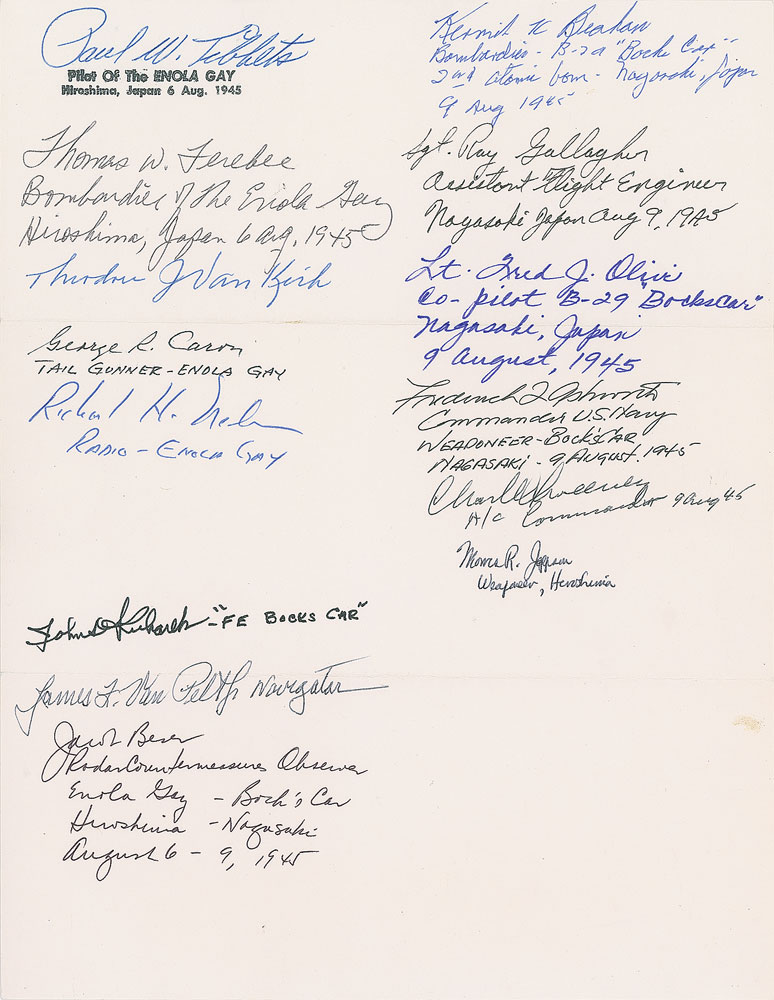 Paul W. Tibbets
Pilot Of The ENOLA GAY
Hiroshima, Japan 6 Aug. 1945
Thomas W. Ferebee
Bombardier of The Enola Gay
Hiroshima, Japan 6 Aug, 1945
Theodore J Van Kirk
George R. Caron
TAIL GUNNER - ENOLA GAY
Richard H. Nelson
RADIO - ENOLA GAY
John D Kuharek - "FE BOCKS CAR"
James F. Van Pelt Jr Navigator
Jacob Beser
Radar Countermeasures Observer
Enola Gay - Bock's Car
Hiroshima - Nagasaki
August 6 - 9, 1945
Kermit K Beahan
Bombardier - B-29 "Bocks Car"
2nd atomic bom - Nagasaki, Japan
9 Aug 1945
Sgt. Ray Gallagher
Assistant Flight Engineer
Nagasaki Japan Aug 9, 1945
Lt. Fred J. Olivi
Co-pilot B-29 "Bockscar"
Nagasaki, Japan
9 August, 1945
Frederick L Ashworth
Commander U.S. Navy
WEAPONEER - BOCK'S CAR
NAGASAKI - 9 AUGUST. 1945
Charles Sweeney
A/C Commander 9 Aug 45
Morris R. Jeppson
Weaponeer, Hiroshima